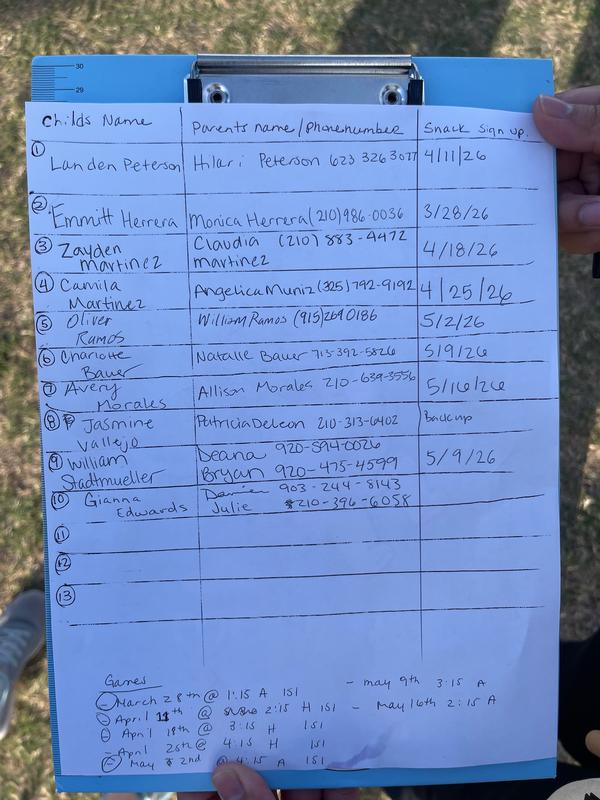 30
29
Childs Name Parents name/phonenumber Snack Sign up.
1 Landen Peterson Hilari Peterson 623 326 3077 4/11/26
2 Emmitt Herrera Monica Herrera (210)986-0036 3/28/26
3 Zayden Claudia (210) 883-4472 4/18/26
martinez martinez
4 Camila Angelica Muniz (325)792-9192 4/25/26
Martinez
5 Oliver William Ramos (915)269 0186 5/2/26
Ramos
6 Charlotte Natalie Bauer 713-392-5826 5/9/26
Bauer
7 Avery Allison Morales 210-639-3556 5/16/26
Morales
8 Jasmine Patricia DeLeon 210-313-6402 Backup
Vallejo
9 William Deana 920-594-0026 5/9/26
Stadtmueller Bryan 920-475-4599
10 Gianna 903-244-8143
Edwards Julie 210-396-6058
11
12
13
Games
- March 28th @ 1:15 A 151 - may 9th 3:15 A
- April 11th @ 2:15 H 151 - May 16th 2:15 A
- April 18th @ 3:15 H 151
- April 25th @ 4:15 H 151
- May 2nd @ 4:15 A 151